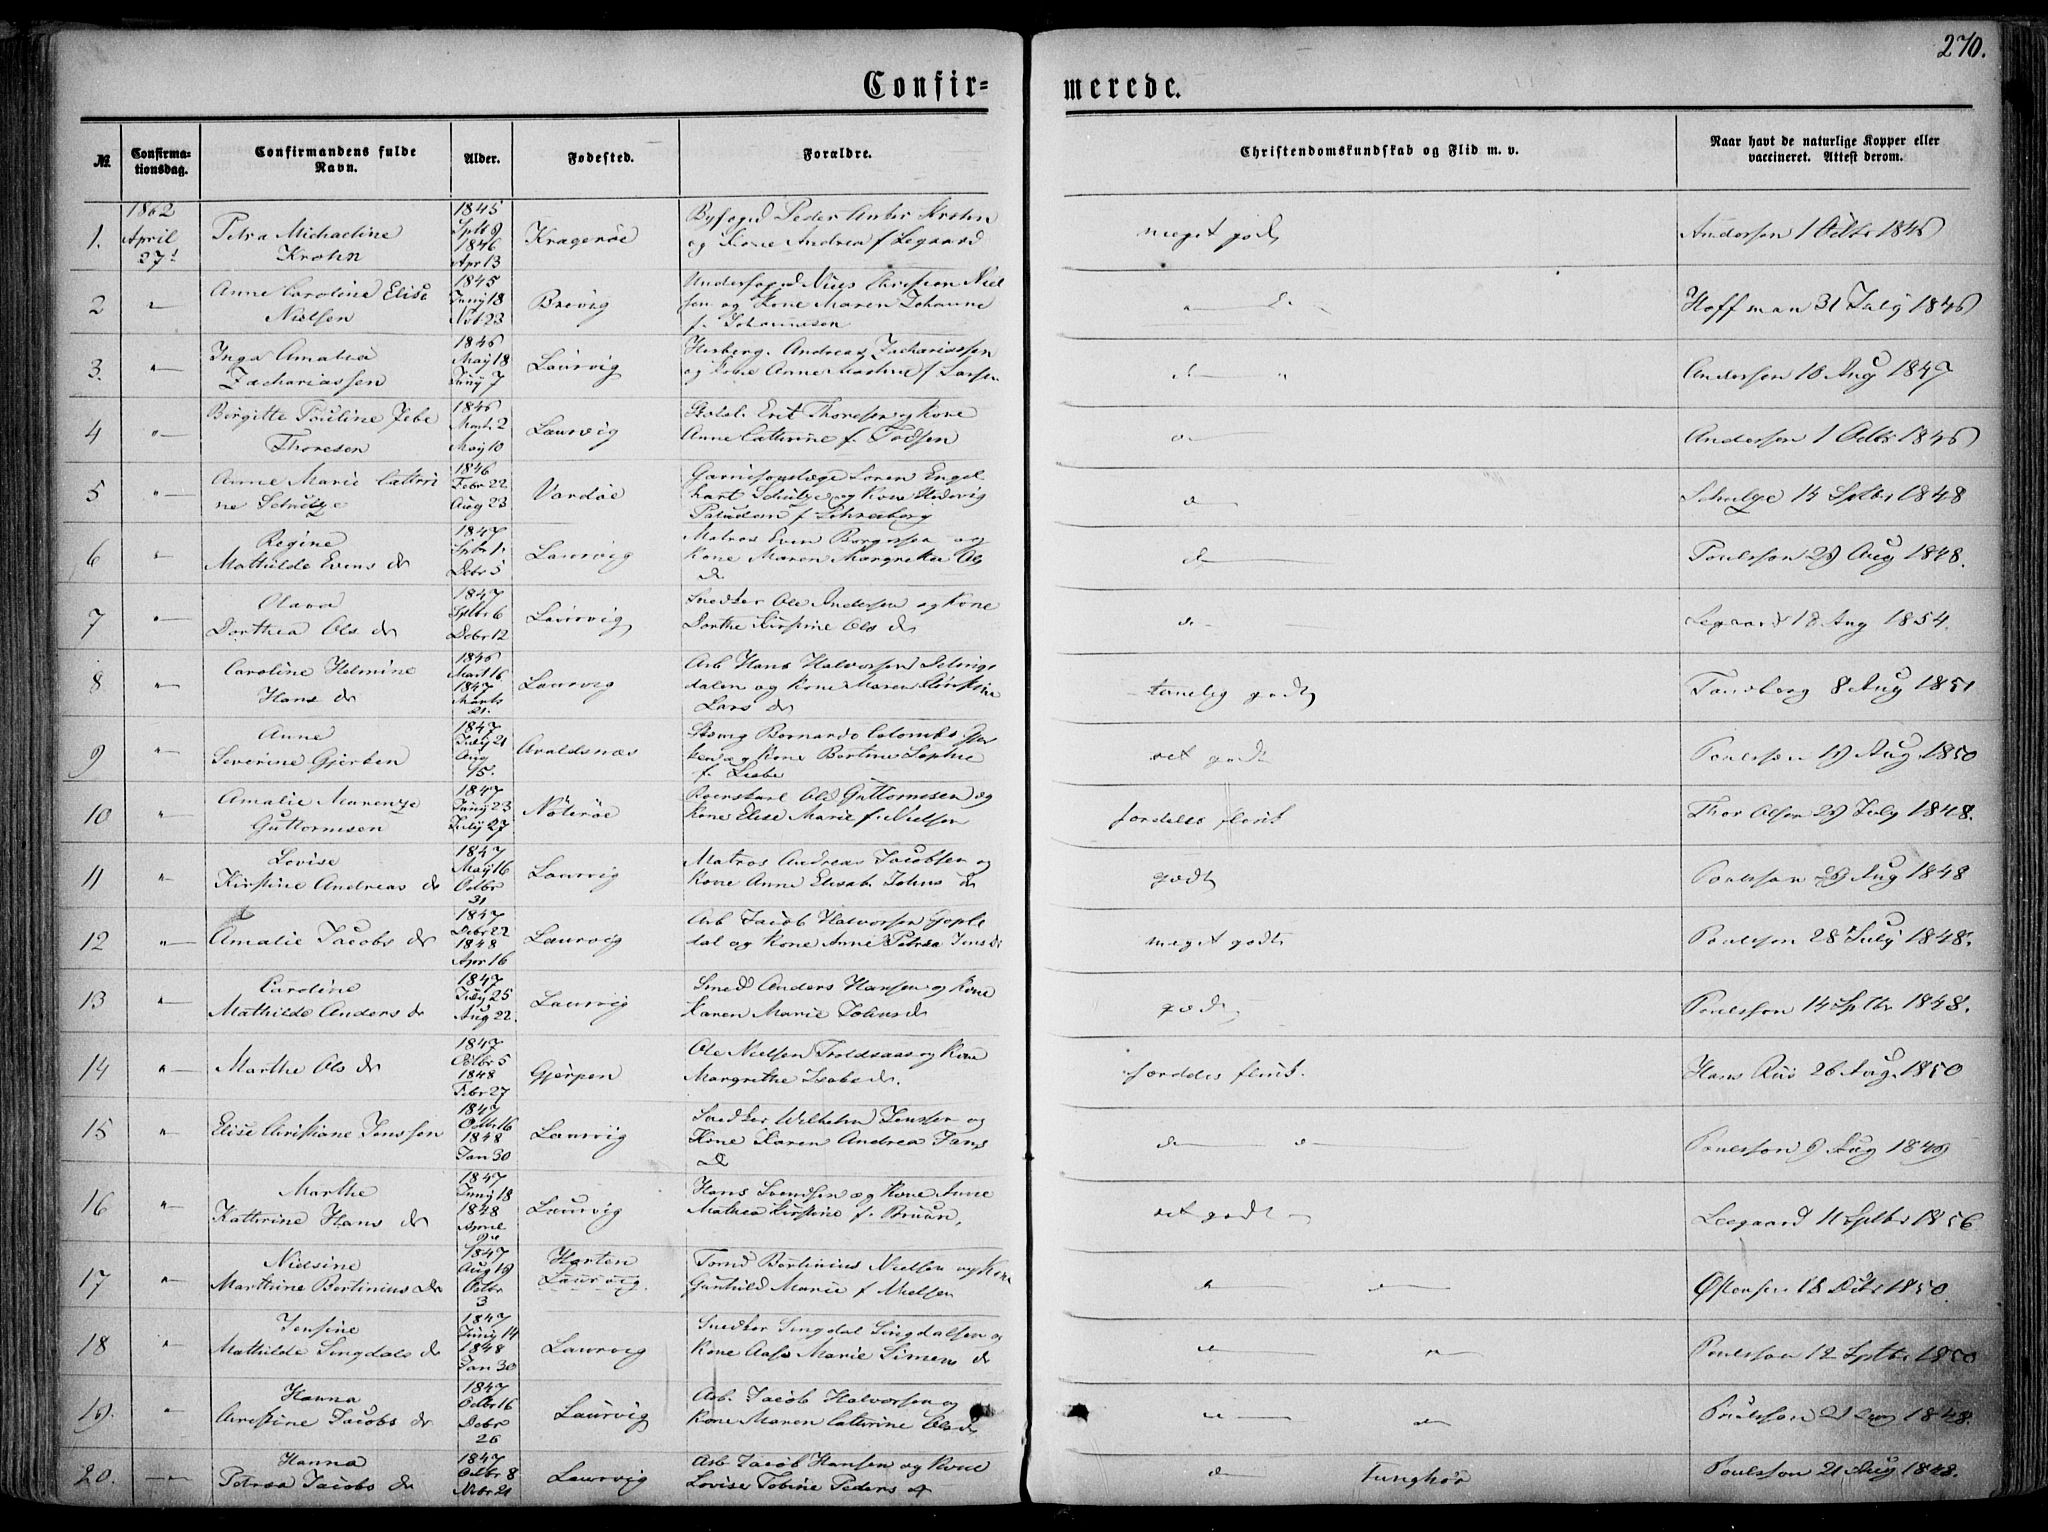 270.
Confirmerede.
№ Confirmationsdag. Confirmandens fulde Navn. Alder. Fødested. Forældre. Christendomskundskab og Flid m. v. Naar havt de naturlige Kopper eller vaccineret. Attest derom.
1862
1. April 27d Petra Michaeline Krohn 1845 Sptb 9 1846 Apr 13 Kragerøe Byfoged Peder Anker Krohn og Kone Andrea f Legaard meget godt Andersen 1 Octbr 1846
2 " Anne Caroline Elise Nielsen 1845 Juny 18 Nvb 23 Brevig Underfoged Niels Christian Nielsen og Kone Maren Johanne f. Johannesen Hoffman 31 July 1846
3. " Inga Amalia Zachariassen 1846 May 18 Juny 7 Laurvig Herberg. Andreas Zachariassen og Kone Anne Mathea f Larsen Andersen 18 Aug 1847
4 " Birgitte Pouline Jebe Thoresen 1846 Marts 2 May 10 Laurvig Erik Thoresen og Kone Anne Cathrine f. Andersen 1 Octbr 1846
5 " Anne Marie Cathrine Schulze 1846 Febr 22 Aug 23 Vardøe Garnisonslæge Soren Engelhart Schulze og Kone Hedevig Paludan f. Schulze 14 Sptbr 1848
6 " Regine Mathilde Evens dr 1847 Sptbr 1 Debr 5 Laurvig Matros Even Borgersen og Kone Maren Margrethe Ols dr Poulsson 29 Aug 1848.
7 " Olava Dorthea Ols dr 1847 Sptbr 6 Debr 12 Laurvig Snedker Ole Andersen og Kone Dorthe Kirstine Ols dr Legaard 18 Aug 1854.
8 " Caroline Helmine Hans dr 1846 Mart 16 1847 Marts 21. Laurvig Arb Hans Halvorsen og Kone Maren Kirstine Lars dr temelig godt Tandberg 8 Aug 1851
9 " Anne Severine Gjerken 1847 July 21 Aug 15. Avaldsnæs Bernardo Colombo Gjerken og Kone Bertine Sophie f. ret godt Poulsson 19 Aug 1850
10 " Amalie Marenze Guttormsen 1847 Juny 23 July 27 Nøterøe Ole Guttormsen og Kone Elise Marie f. Nielsen særdeles flink Thor Olsen 29 July 1848.
11 " Lovise Kirstine Andreas dr 1847 May 16 Octbr 31 Laurvig Matros Andreas Jacobsen og Kone Anne Elisab. Johns dr godt Poulsson 29 Aug 1848
12 " Amalie Jacobs dr 1847 Debr 22 1848 Apr 16 Laurvig Arb Jacob Halvorsen og Kone Anne Petrea Jens dr meget godt Poulsson 28 July 1848.
13 " Caroline Mathilde Anders dr 1847 July 25 Aug 22. Laurvig Smed Anders Hansen og Kone Karen Marie Johns dr godt Poulsson 14 Sptbr 1848.
14 " Marthe Ols dr 1847 Octbr 5 1848 Febr 27 Gjerpen Ole Nielsen Troldsaas og Kone Margrethe Isaks dr. særdeles flink. Hans Riis 26 Aug. 1850
15 " Elise Christiane Jenssen 1847 Octb 16 1848 Jan 30 Laurvig Snedker Wilhelm Jenssen og Kone Karen Andrea Jans dr Poulsson 9 Aug 1849
16 " Marthe Kathrine Hans dr 1847 Juny 18 1848 April Laurvig Hans Svendsen og Kone Anne Mathea Kirstine f. Bruun, ret godt Leegaard 11 Sptbr 1856
17 " Nielsine Marthine Bertinius dr 1847 Aug 19 Octbr 3 Horten Laurvig. Bertinius Nielsen og Kone Gunhild Marie f Nielsen Østensen 18 Debr 1850.
18 " Jensine Mathilde Singdals dr 1847 Juny 14 1848 Jan 30 Laurvig Snedker Singdal Singdalsen og Kone Aase Marie Simens dr Poulsson 12 Sptbr 1850
19. " Hanna Christine Jacobs dr 1847 Octbr 16 Debr 26 Laurvig Arb. Jacob Halvorsen og Kone Maren Cathrine Ols dr Poulsson 21 Aug 1848.
20. " Hanna Petrea Jacobs dr 1847 Octbr 8 Nvbr 21 Laurvig Arb Jacob Hansen og Kone Lovise Tobine Peders dr Tunghør Poulsson 21 Aug 1848.